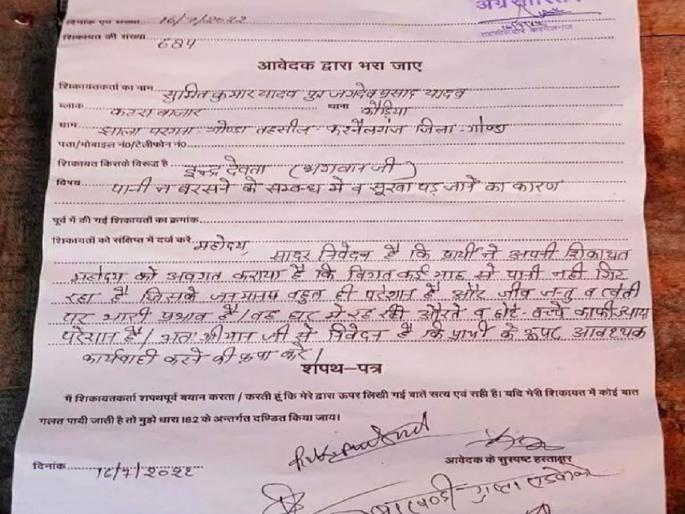 दिनांक एवं संख्या 16/7/2022
अग्रसारित
शिकायत की संख्या 684
आवेदक द्वारा भरा जाए
शिकायतकर्ता का नाम सुमित कुमार यादव पुत्र जगदेव प्रसाद यादव
ब्लाक कटरा बाजार थाना कौड़िया
ग्राम झाला परगना गोण्डा तहसील करनैलगंज जिला-गोण्डा
पता/मोबाइल नं0/टेलीफोन नं0
शिकायत किसके विरूद्ध है इन्द्र देवता (भगवान जी)
विषय पानी न बरसने के सम्बन्ध में व सूखा पड़ जाने का कारण
पूर्व में की गई शिकायतों का क्रमांक
शिकायतों को संक्षिप्त में दर्ज करें महोदय,
सादर निवेदन है कि प्रार्थी ने अपनी शिकायत
महोदय को अवगत कराया है कि विगत कई माह से पानी नही गिर
रहा है जिसके जनमानष बहुत ही परेशान है और जीव जन्तु व खेती
पर भारी प्रभाव है। घर में रह रही औरते व छोटे-बच्चे काफी ज्यादा
परेशान है। अतः श्रीमान जी से निवेदन है कि प्रार्थी के ऊपर आवश्यक
कार्यवाही करने की कृपा करे।
शपथ-पत्र
मैं शिकायतकर्ता शपथपूर्व बयान करता / करती हूं कि मेरे द्वारा ऊपर लिखी गई बाते सत्य एवं सही है। यदि मेरी शिकायत में कोई बात
गलत पायी जाती है तो मुझे धारा 182 के अन्तर्गत दण्डित किया जाय।
दिनांक 16/7/2022
आवेदक के सुस्पष्ट हस्ताक्षर